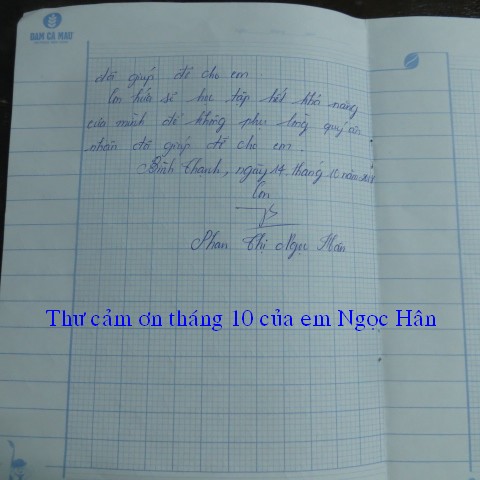 ĐẠM CÀ MAU
đã giúp đỡ cho em.
Em hứa sẽ học tập hết khả năng
của mình để không phụ lòng quý ân
nhân đã giúp đỡ cho em.
Bình Thanh, ngày 14 tháng 10 năm
Em
Phan Thị Ngọc Hân
Thư cảm ơn tháng 10 của em Ngọc Hân